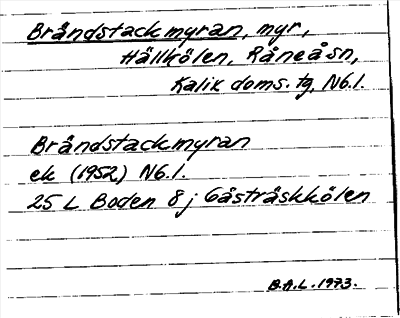 Bråndstackmyran, myr,
Hällkölen, Råneå sn,
Kalix doms. tg, Nb.l.
Bråndstackmyran
ek (1952) Nb.l.
25 L Boden 8 j Gåsträskkölen
B.A.L. 1973.